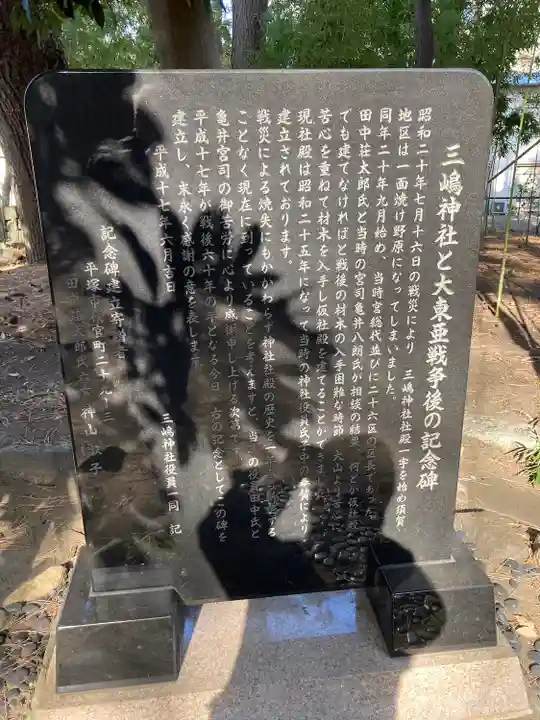 三嶋神社と大東亜戦争後の記念碑
昭和二十年七月十六日の戦災により 三嶋神社社殿一宇を始め須賀
地区は一面焼け野原になってしまいました。
同年二十年九月始め、当時宮総代並びに二十六区の区長であった
田中荘太郎氏と当時の宮司亀井八朗氏が相談の結果、何とか仮社殿
でも建てなければと戦後の材木の入手困難な時節、大山より
苦心を重ねて材木を入手し仮社殿を建てることが
現社殿は昭和二十五年になって当時の神社役員氏子の により
建立されております。
戦災による焼失にもかかわらず神社社殿の歴史を一 する
ことなく現在に到っていることを考えますと、当 の 田中氏と
亀井宮司の御苦労に心より感謝申し上げる次第で
平成十七年が戦後六十年の年となる今日 右の記念として の碑を
建立し、末永く感謝の意を表します。
平成十七年六月吉日
三嶋神社役員一同 記
記念碑建立寄
平塚市 宮町二十九 三
田 郎氏 神山 子